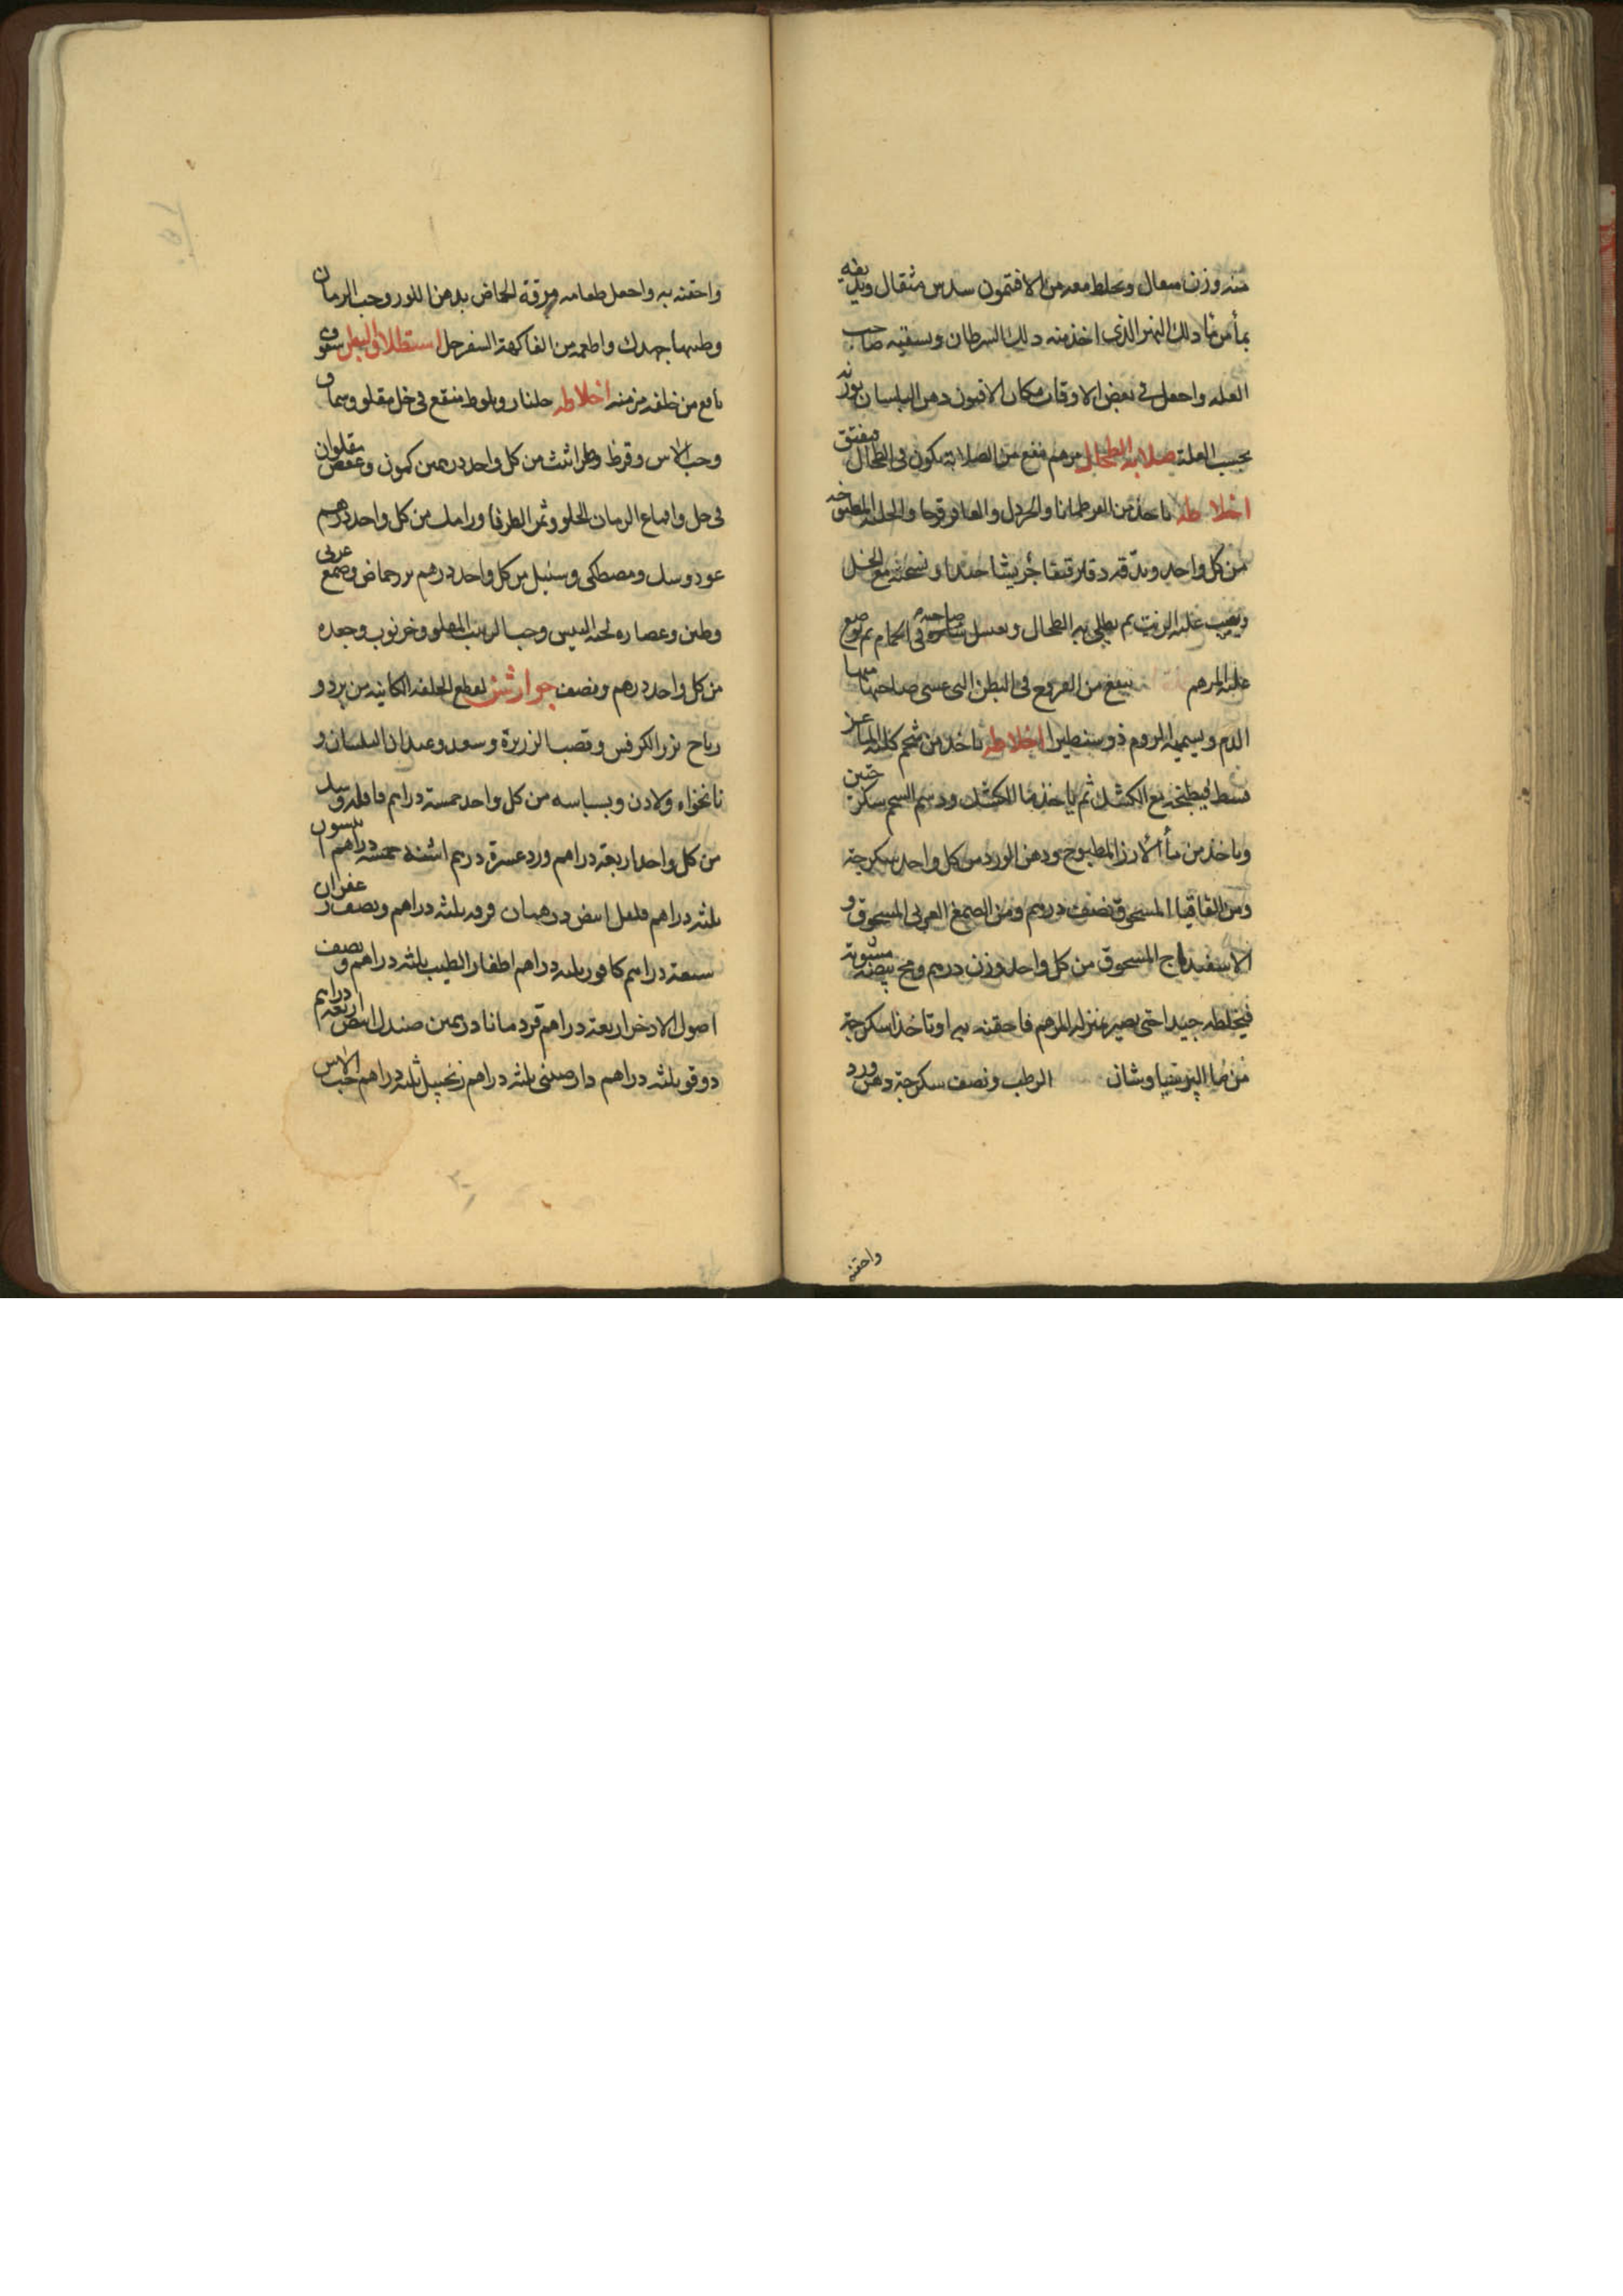 منه وزن مثقال ويخلط معه من الافتمون سدس مثقال ويديفه
بمأ من ما ذلك النهر الذى اخذ منه ذلك السرطان ويسقيه صاحب
العله واجعل فى بعض الاوقات مكان الافيون دهن البلسان بوزنه
بحسب العلة صلابة الطحال مرهم ينفع من الصلابة يكون فى الطحال
اخلاطه ياخذ من القرطمانا والخردل والعاقرقرحا والحلبه المطبوخه
من كل واحد ويدقه دقا رقيقا جريشا جيدا ويسحقه مع الخل
ويصب عليه الزيت ثم يطلى به الطحال ويغسل صاحبه فى الحمام ثم يوضع
عليه المرهم ينفع من القروح فى البطن التى عسى صاحبها منها
الدم ويسميه الروم ذوسنطيرا اخلاطه تاخذ من شحم كليه الماعز
قسط فيطبخه مع الكشك ثم ياخذ ما الكشك ودسم الشحم سكرجتين
وياخذ من مأ الأرز المطبوخ ودهن الورد من كل واحد سكرجة
ومن القاقيا المسحوق نصف درهم ومن الصمغ العربى المسحوق و
الاسفيداج المسحوق من كل واحد وزن درهم ومح بيضه مشوية
فيخلطه جيدا حتى يصير بمنزله المرهم فاحقنه به او تاخذ اسكرجة
من ما البرسياوشان الرطب ونصف سكرجة دهن ورد
واحقنه
واحقنه به واجعل طعامه مرقة الحماض بدهن اللوز وحب الرمان
وطيبها جهدك واطعمه من الفاكهة السفرجل استطلاق البطن سفوف
نافع من خلفه مزمنه اخلاطه جلنار وبلوط منقع فى خل مقلو وسماق
وحب الاس وقرظ وطراثيث من كل واحد درهمين كمون وعفص مقلوان
فى خل واقماع الرمان الحلو وثمر الطرفا ورامك من كل واحد درهم
عود وسك ومصطكى وسنبل من كل واحد درهم بزر حماض وصمغ عربى
وطين وعصاره لحيه التيس وحب الزبيب المقلو وخرنوب وجعده
من كل واحد درهم ونصف جوارشن لقطع الخلفه الكاينه من برد و
رياح بزر الكرفس وقصب الزريرة وسعد وعيدان البلسان و
نانخواه ولادن وبسباسه من كل واحد خمسة دراهم قاقله وسك
من كل واحد اربعة دراهم ورد عشرة درهم اشنه خمسه دراهم انيسون
ثلثه دراهم فلفل ابيض درهمان قرفه ثلثه دراهم ونصف زعفران
سبعة دراهم كافور ثلثه دراهم اظفار الطيب ثلثه دراهم ونصف
اصول الاذخر اربعة دراهم قردمانا درهمين صندل ابيض اربعة دراهم
دوقو ثلثه دراهم دارصينى ثلثه دراهم زنجبيل ثلثه دراهم حب الاس